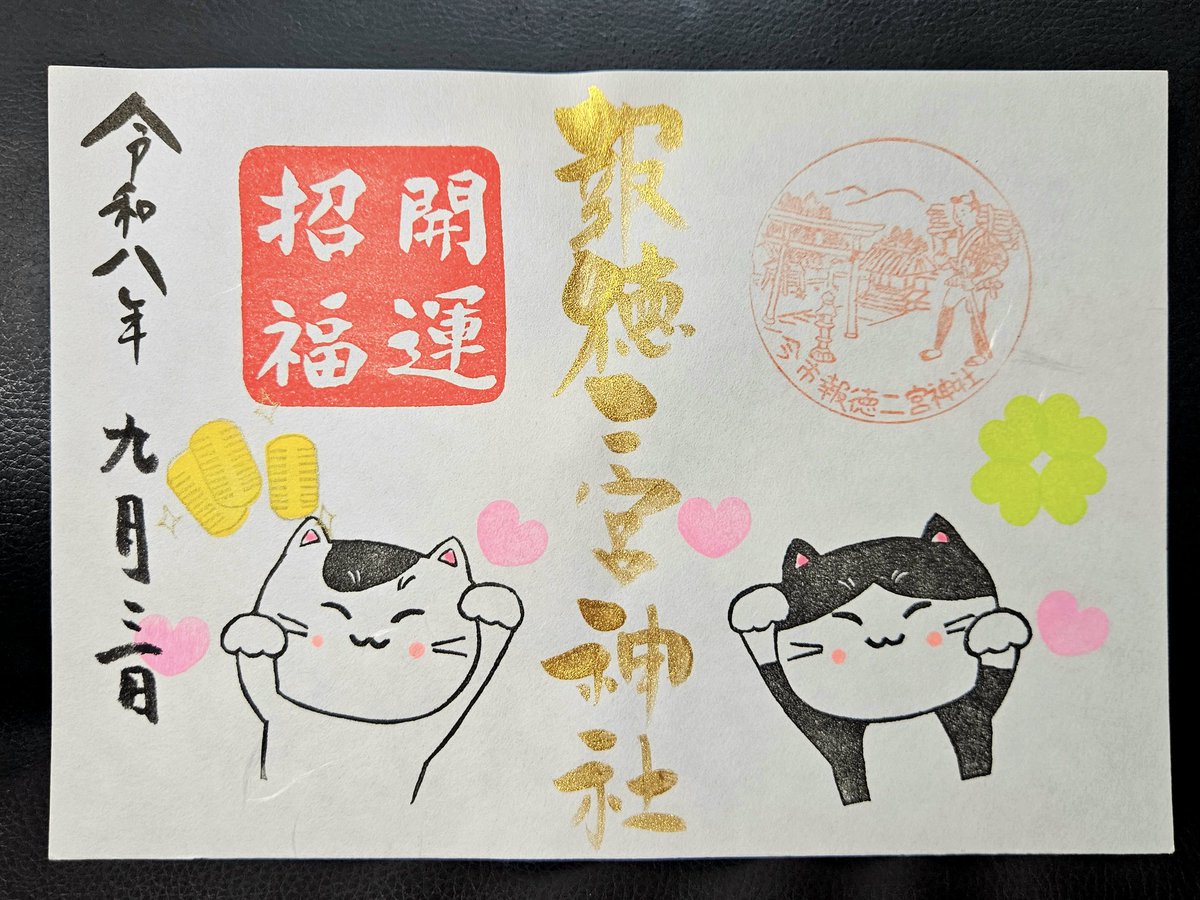 市報徳二宮神社
報徳二宮神社
開運
招福
令和八年 九月三日